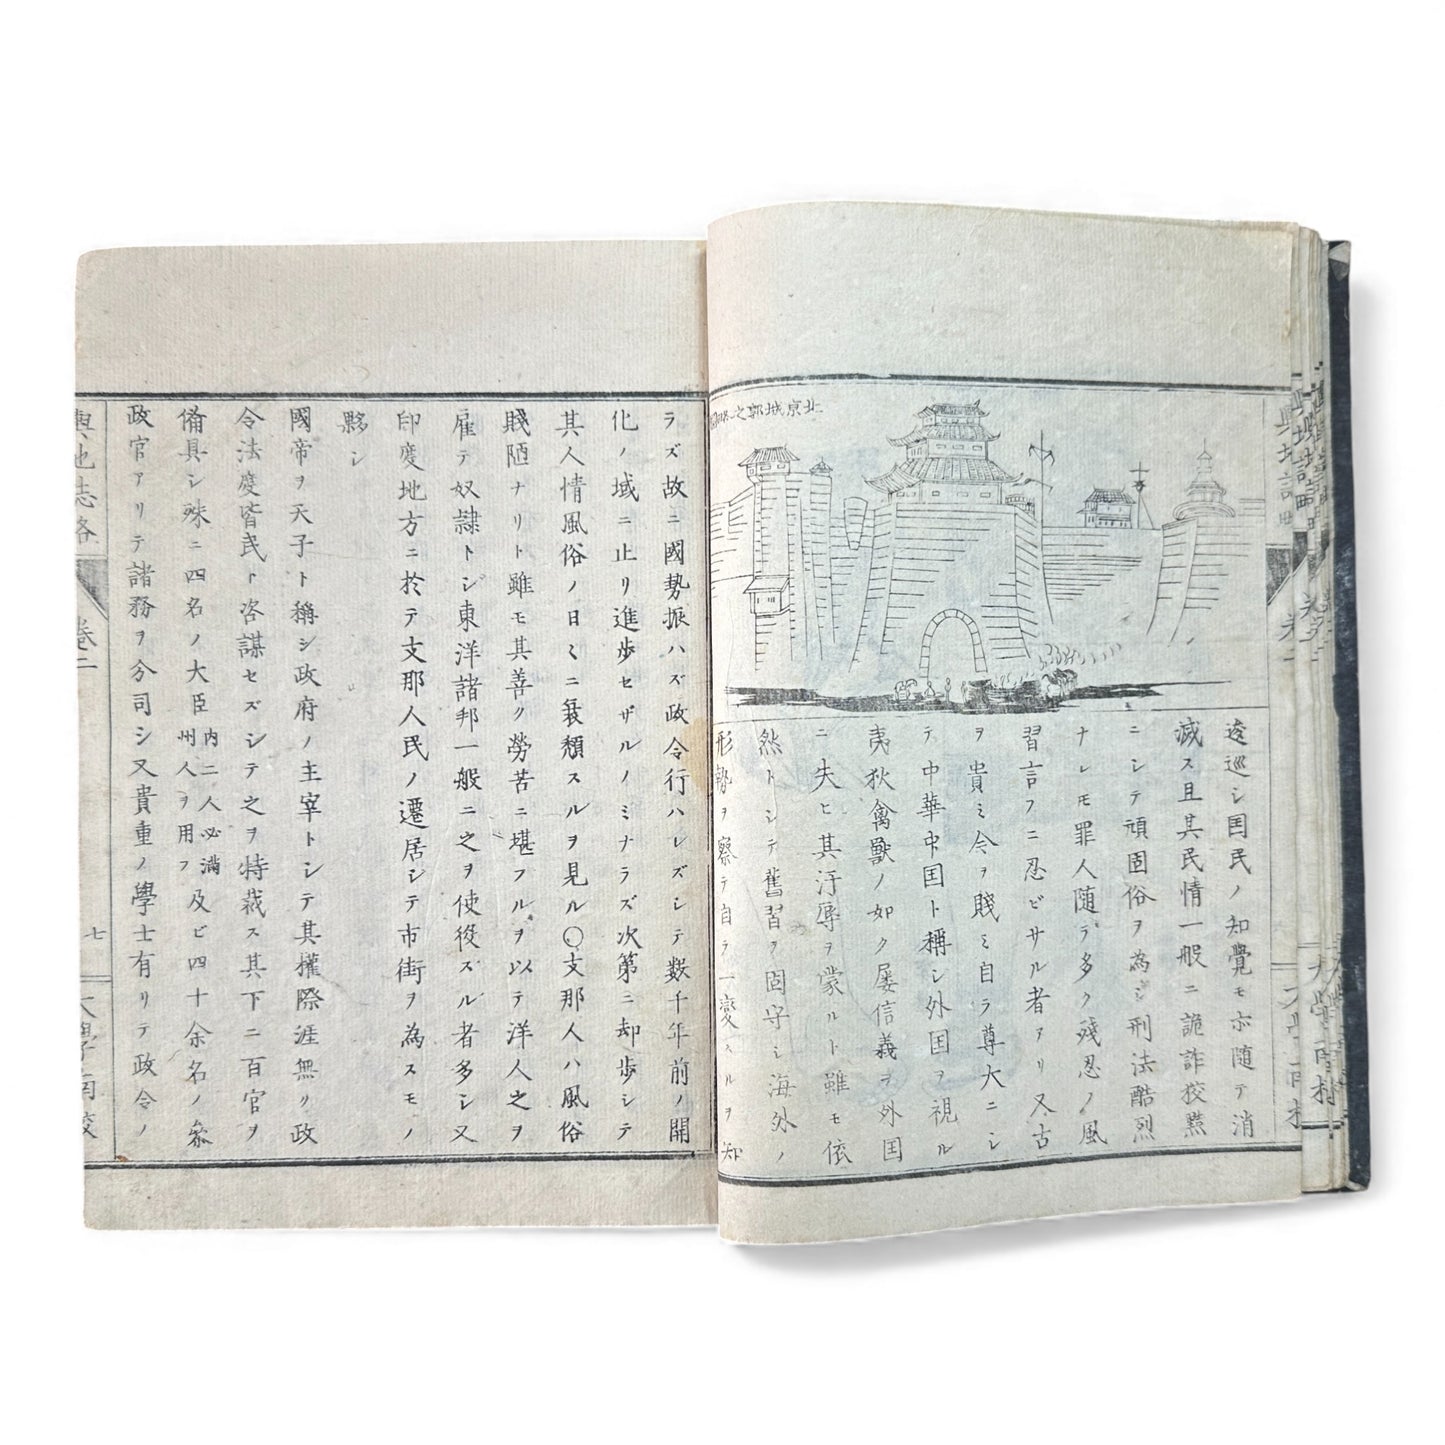 北京城郭之
逡巡シ国民ノ知覺モ亦随テ消
滅ス且其民情一般ニ詭詐狡黠
ニシテ頑固俗ヲ為シ刑法酷烈
ナレモ罪人随テ多ク残忍ノ風
習言フニ忍ビサル者アリ又古
ヲ貴ミ今ヲ賤ミ自ラ尊大ニシ
テ中華中国ト稱シ外国ヲ視ル
夷狄禽獣ノ如ク屡信義ヲ外国
ニ失ヒ其汙辱ヲ蒙ルト雖モ依
然トシテ舊習ヲ固守シ海外ノ
形勢ヲ察テ自ラ一変スルヲ知
ラズ故ニ國勢振ハズ政令行ハレズシテ数千年前ノ開
化ノ域ニ止リ進歩セザルノミナラズ次第ニ却歩シテ
其人情風俗ノ日ミニ衰頽スルヲ見ル○支那人ハ風俗
賤陋ナリト雖モ其善ク勞苦ニ堪フルヲ以テ洋人之ヲ
雇テ奴隷トシ東洋諸邦一般ニ之ヲ使役ズル者多シ又
印度地方ニ於テ支那人民ノ遷居シテ市街ヲ為スモノ
夥シ
國帝ヲ天子ト稱シ政府ノ主宰トシテ其權際涯無ク政
令法度皆民ト咨謀セズシテ之ヲ特裁ス其下ニ百官ヲ
備具シ殊ニ四名ノ大臣内二人必満州人ヲ用フ及ビ四十余名ノ叅
政官アリテ諸務ヲ分司シ又貴重ノ學士有リテ政令ノ
輿地誌略
卷二
七
大學南校